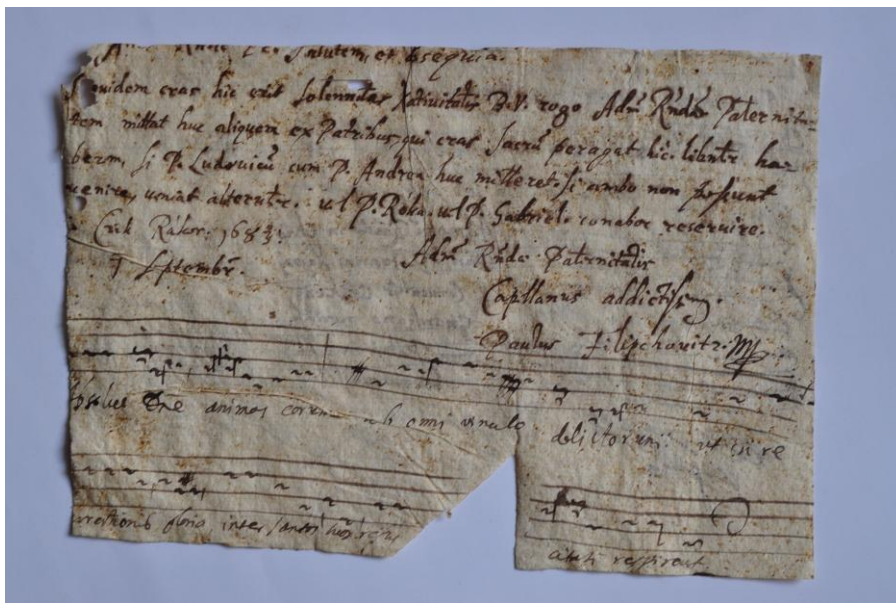 Salutem, et obsequia.
quidem cras hic erit Solennitas Nativitatis B.V. rogo Adm Rndã Paternita=
tem mittat huc aliquem ex Patribus, qui cras Sacrũ peragat hic. libentr ha=
berem, si P. Ludovicũ cum P. Andrea huc mitteret. si ambo non possunt
venire, veniat alteruter. vel P. Roka. vel P. Gabriel. conabor reservire.
Csik Rákos. 168
7 Septembr. Adm Rndae Paternitatis
Capllanus addictissm.
Paulus Filipchovitz. mp
Absolve Dne animas eorum ab omni vinculo delictorum ut in re
surrectionis gloria, inter sanctos
citati respirent